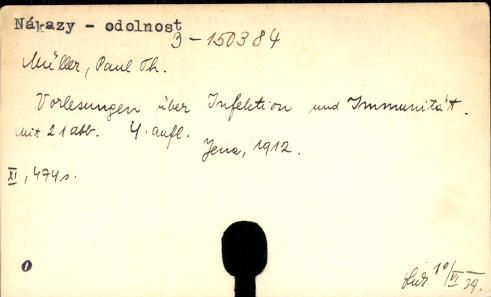 Nákazy - odolnost
3-150384
Müller, Paul Th.
Vorlesungen über Infektion und Immunität.
Mit 21 abb. 4. aufl.
Jena, 1912.
XI, 474 s.
0
10/VI 39.